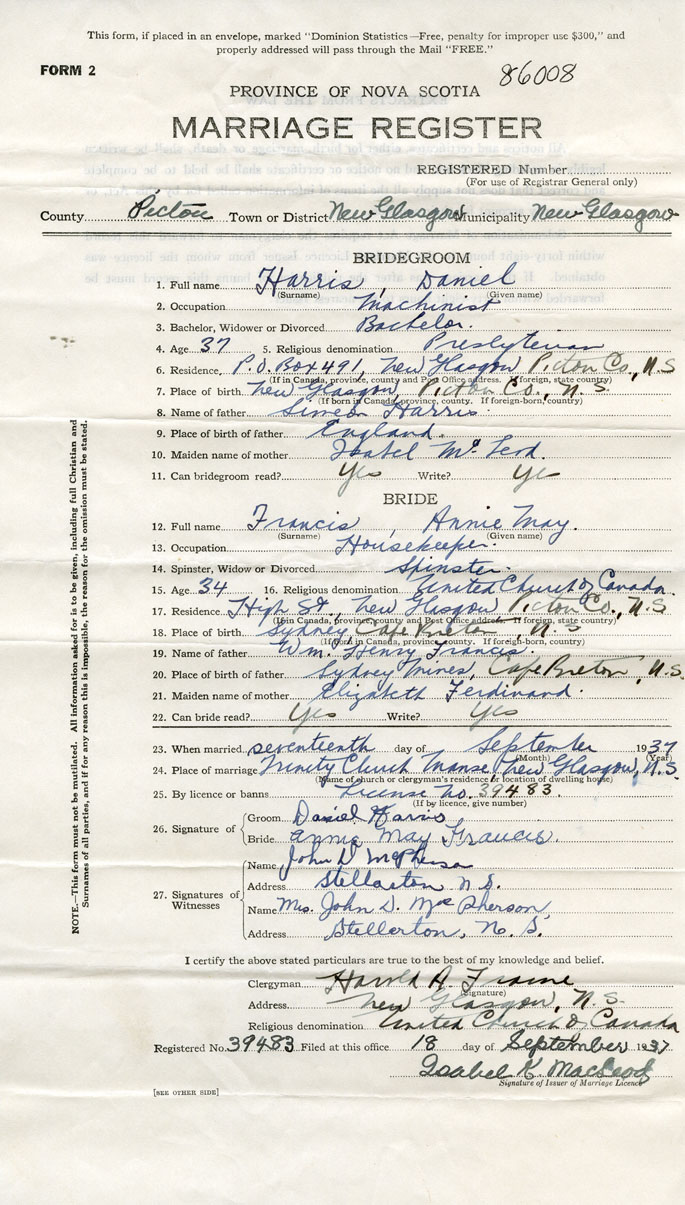 This form, if placed in an envelope, marked "Dominion Statistics—Free, penalty for improper use $300," and
properly addressed will pass through the Mail "FREE."
FORM 2
86008
PROVINCE OF NOVA SCOTIA
MARRIAGE REGISTER
REGISTERED Number
(For use of Registrar General only)
County Pictou Town or District New Glasgow Municipality New Glasgow
BRIDEGROOM
1. Full name Harris, Daniel
(Surname) (Given name)
2. Occupation Machinist
3. Bachelor, Widower or Divorced Bachelor.
4. Age 37 5. Religious denomination Presbyterian
6. Residence, P.O. Box 491, New Glasgow Picton Co., N.S
(If in Canada, province, county and Post Office address. If foreign, state country)
7. Place of birth New Glasgow, Picton Co., N.S.
(If born in Canada, province, county. If foreign-born, country)
8. Name of father Simeon Harris.
9. Place of birth of father England.
10. Maiden name of mother Isabel McLeod.
11. Can bridegroom read? Yes Write? Yes
BRIDE
12. Full name Francis, Annie May.
(Surname) (Given name)
13. Occupation Housekeeper.
14. Spinster, Widow or Divorced Spinster.
15. Age 34 16. Religious denomination United Church of Canada.
17. Residence High St., New Glasgow Picton Co., N.S
(If in Canada, province, county and Post Office address. If foreign, state country)
18. Place of birth Sydney Cape Breton, N.S
(If born in Canada, province, county. If foreign-born, country)
19. Name of father Wm. Henry Francis.
20. Place of birth of father Sydney Mines, Cape Breton, N.S.
21. Maiden name of mother Elizabeth Ferdinand.
22. Can bride read? Yes Write? Yes
23. When married seventeenth day of September 1937
(Month) (Year)
24. Place of marriage Trinity Church Manse New Glasgow, N.S.
(Name of church or clergyman's residence or location of dwelling house)
25. By licence or banns License No. 39483
(If by licence, give number)
26. Signature of Groom Daniel Harris
Bride Annie May Francis.
27. Signatures of Witnesses
Name John D McPherson
Address Stellarton N.S.
Name Mrs. John D. MacPherson,
Address Stellerton, N.S.
I certify the above stated particulars are true to the best of my knowledge and belief.
Clergyman Harold A. Frame
(Signature)
Address New Glasgow, N.S.
Religious denomination United Church of Canada
Registered No. 39483 Filed at this office 18 day of September 1937
Isabel K. MacLeod
Signature of Issuer of Marriage Licence
[SEE OTHER SIDE]
NOTE.—This form must not be mutilated. All information asked for is to be given, including full Christian and
Surnames of all parties, and if for any reason this is impossible, the reason for the omission must be stated.